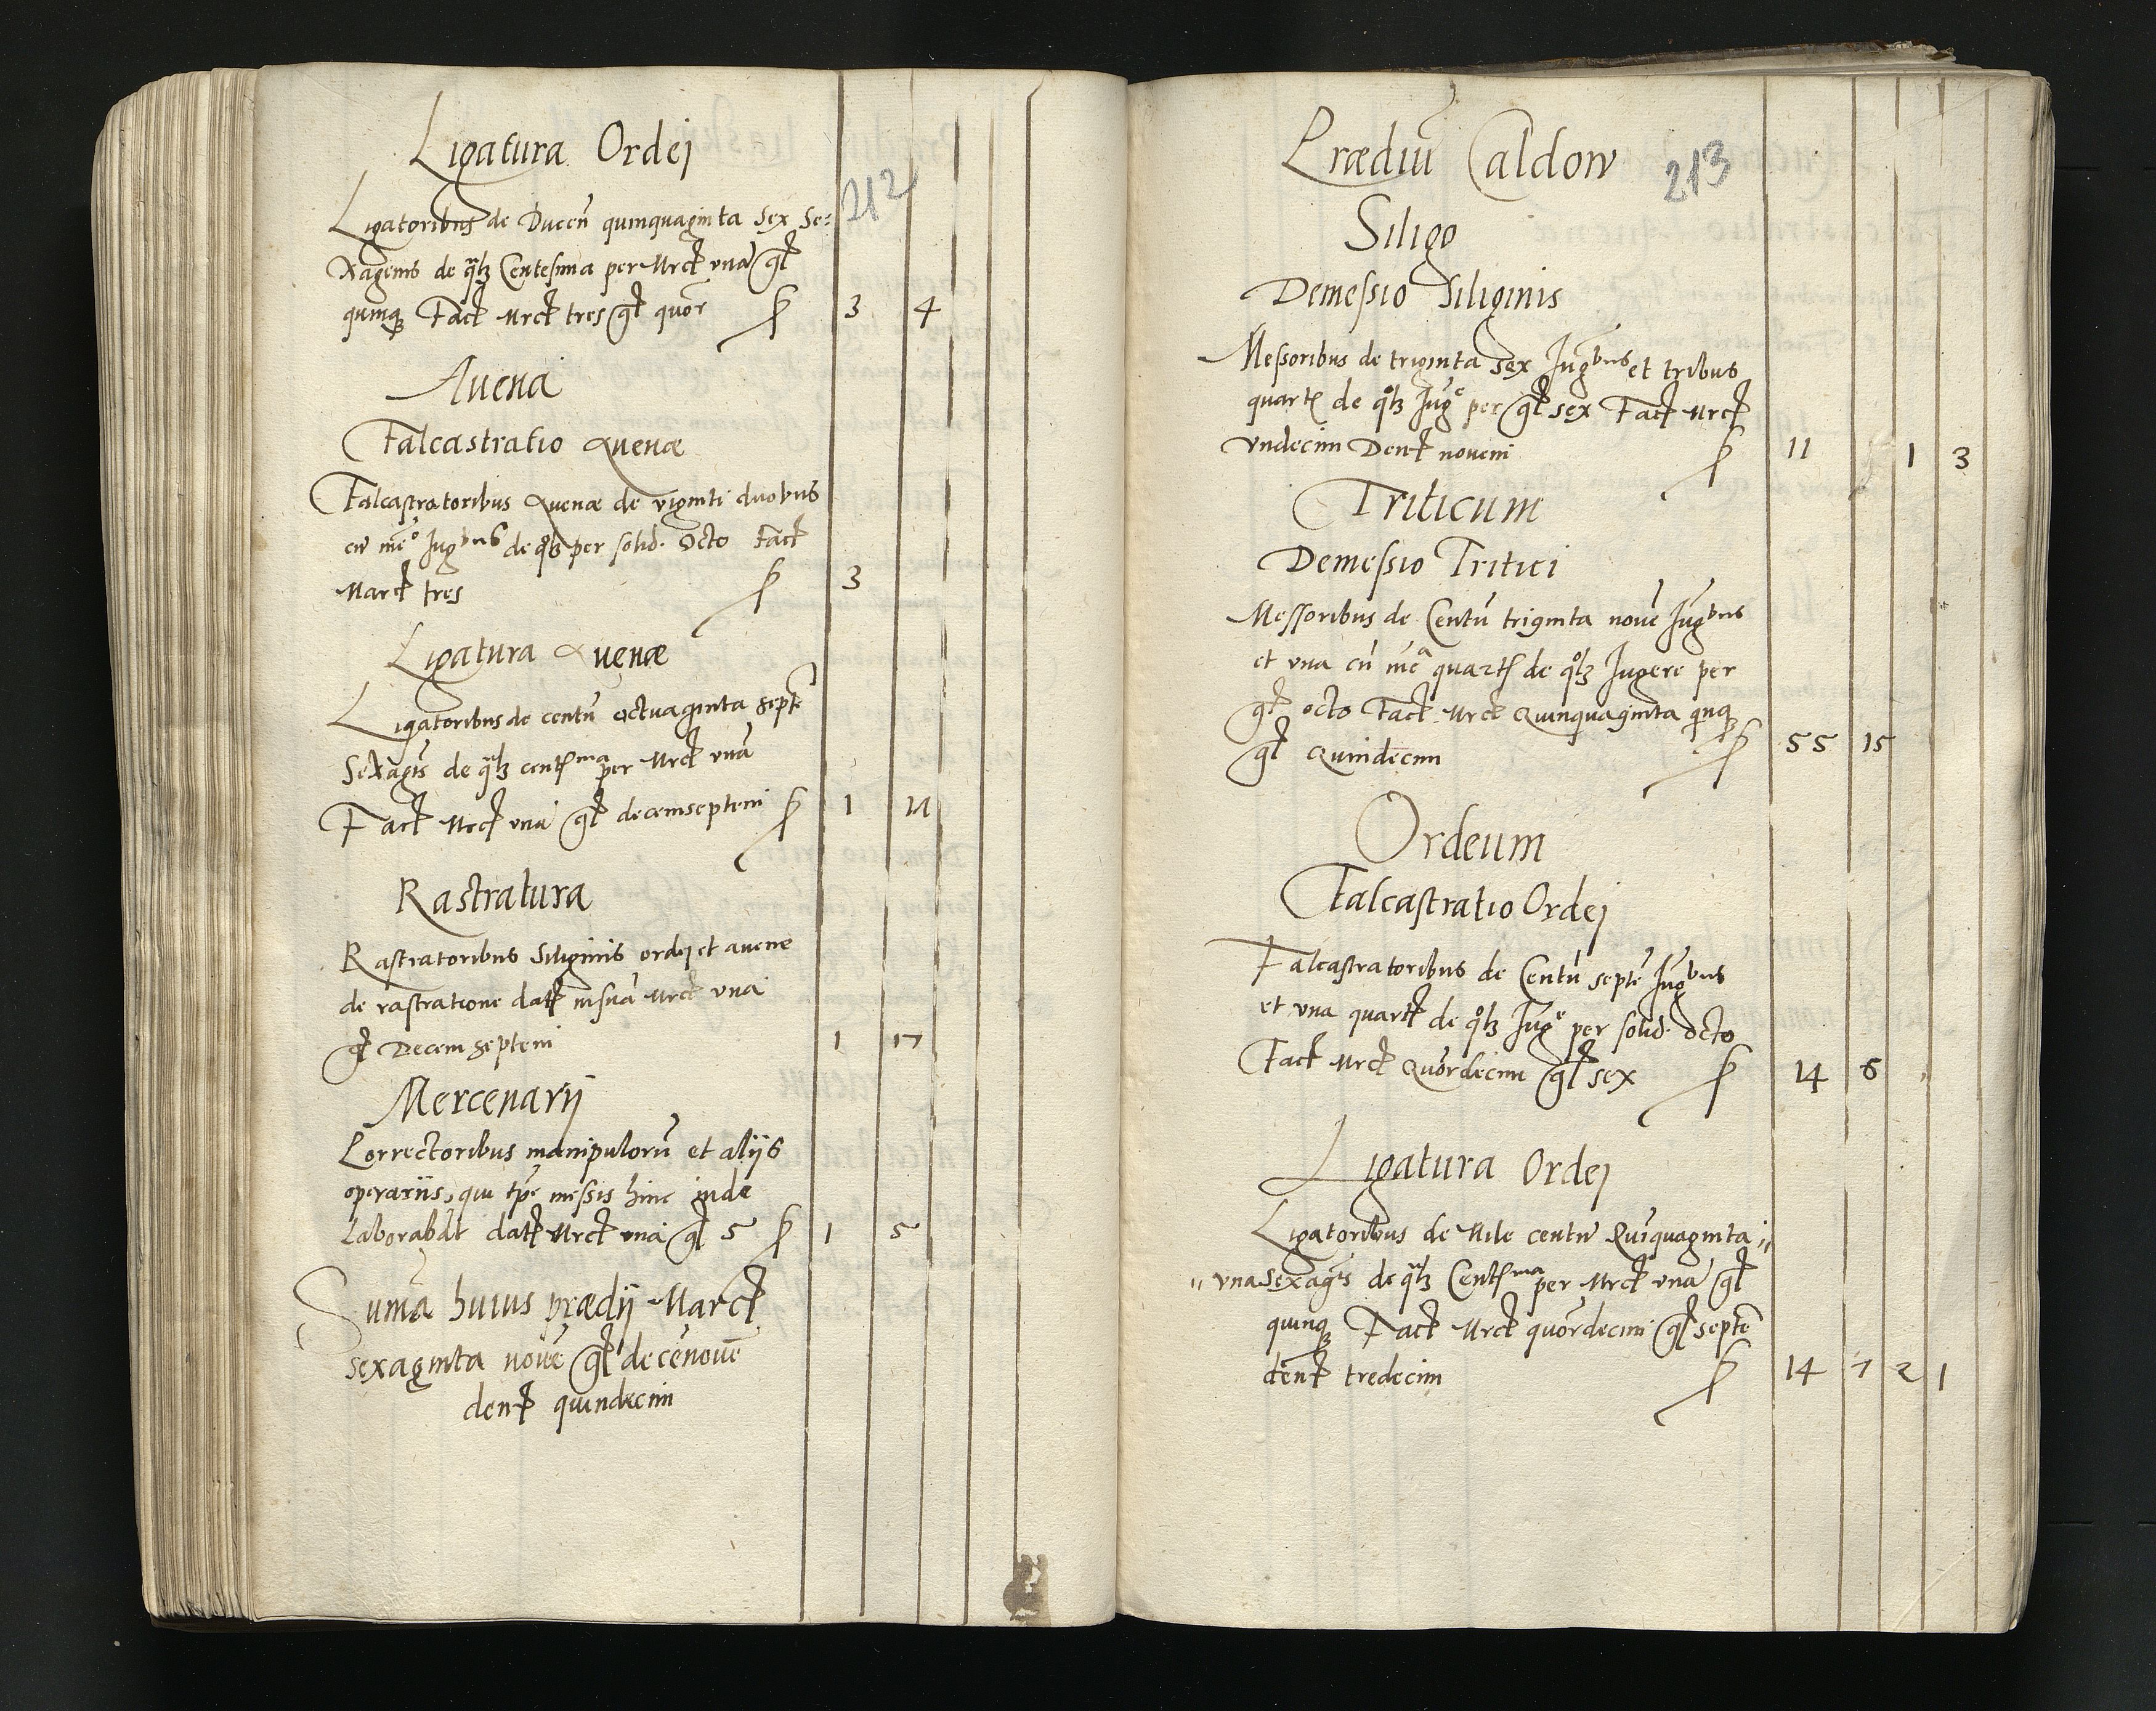 Ligatura Ordej
212
Ligatoribus de Ducen̄ quinquaginta Sex Se:
xagenis de qꝉbꝫ Centesima per Mrcꝭ vnā gꝭ
quinqꝫ Facꝭ Mrcꝭ tres gꝭ quōr 3 4
Auena
Falcastratio Auenæ
Falcastratoribus Auenæ de viginti duobus
cū meᵒ Jugᵇᵘˢ de qᵒlꝫ per solid. Octo Facꝭ
Marcꝭ tres 3
Ligatura Auenæ
Ligatoribus de centū octuaginta septē
Sexagis de qꝉbꝫ centꝭᵐᵃ per Mrcꝭ vnā
Facꝭ Mrcꝭ vnā gꝭ decemseptem 1
Rastratura
Rastratoribus Siliginis ordej et auene
de rastratione datꝭ insua Mrcꝭ vna
gꝭ Decem septem 1 17
Mercenarij
Correctoribus manipulorū et alijs
operariis, qui tp̄e messis hinc inde
Laborabāt datꝭ Mrcꝭ vna gꝭ 5 1 5
Sumā huius prædij Marcꝭ
sexaginta nouē gꝭ decēnouē
denꝭ quindecim
Prædiū Caldow
213
Siligo
Demessio Siliginis
Messoribus de triginta Sex Jugᵇᵘˢ et tribus
quartꝭ de qᵒlꝫ Jugᵉ per gꝭ sex Facꝭ Mrcꝭ
vndecim Denꝭ novem 11 1 3
Triticum
Demessio Tritici
Messoribus de Centū triginta nouē Jugᵇᵘˢ
et vna cū meᵃ quartꝭ de qᵒlꝫ Jugere per
gꝭ octo Facꝭ Mrcꝭ Quinquaginta qinqꝫ
gꝭ Quindecim 55 15
Ordeum
Falcastratio Ordej
Falcastratoribus de Centū septē Jugᵇᵘˢ
et vna quartꝭ de qᵒlꝫ Jugᵉ per solid. octo
Facꝭ Mrcꝭ Quōrdecim gꝭ sex 14 6
Ligatura Ordej
Ligatoribus de Mile centū Quīquaginta //
// vna Sexagīs de qꝉbꝫ Centꝭᵐᵃ per Mrcꝭ vnā gꝭ
quinqꝫ Facꝭ Mrcꝭ quōrdecim gꝭ septē
denꝭ tredecim 14 7 2 1